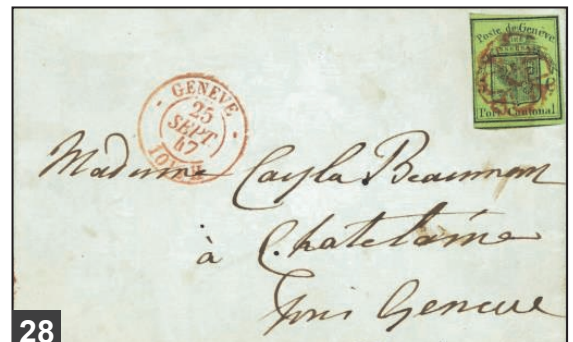 Poste de Genève
Port Cantonal
GENEVE
25
SEPT.
47
Madame Cayla Beaumont
à Chatelaine
Genève
28